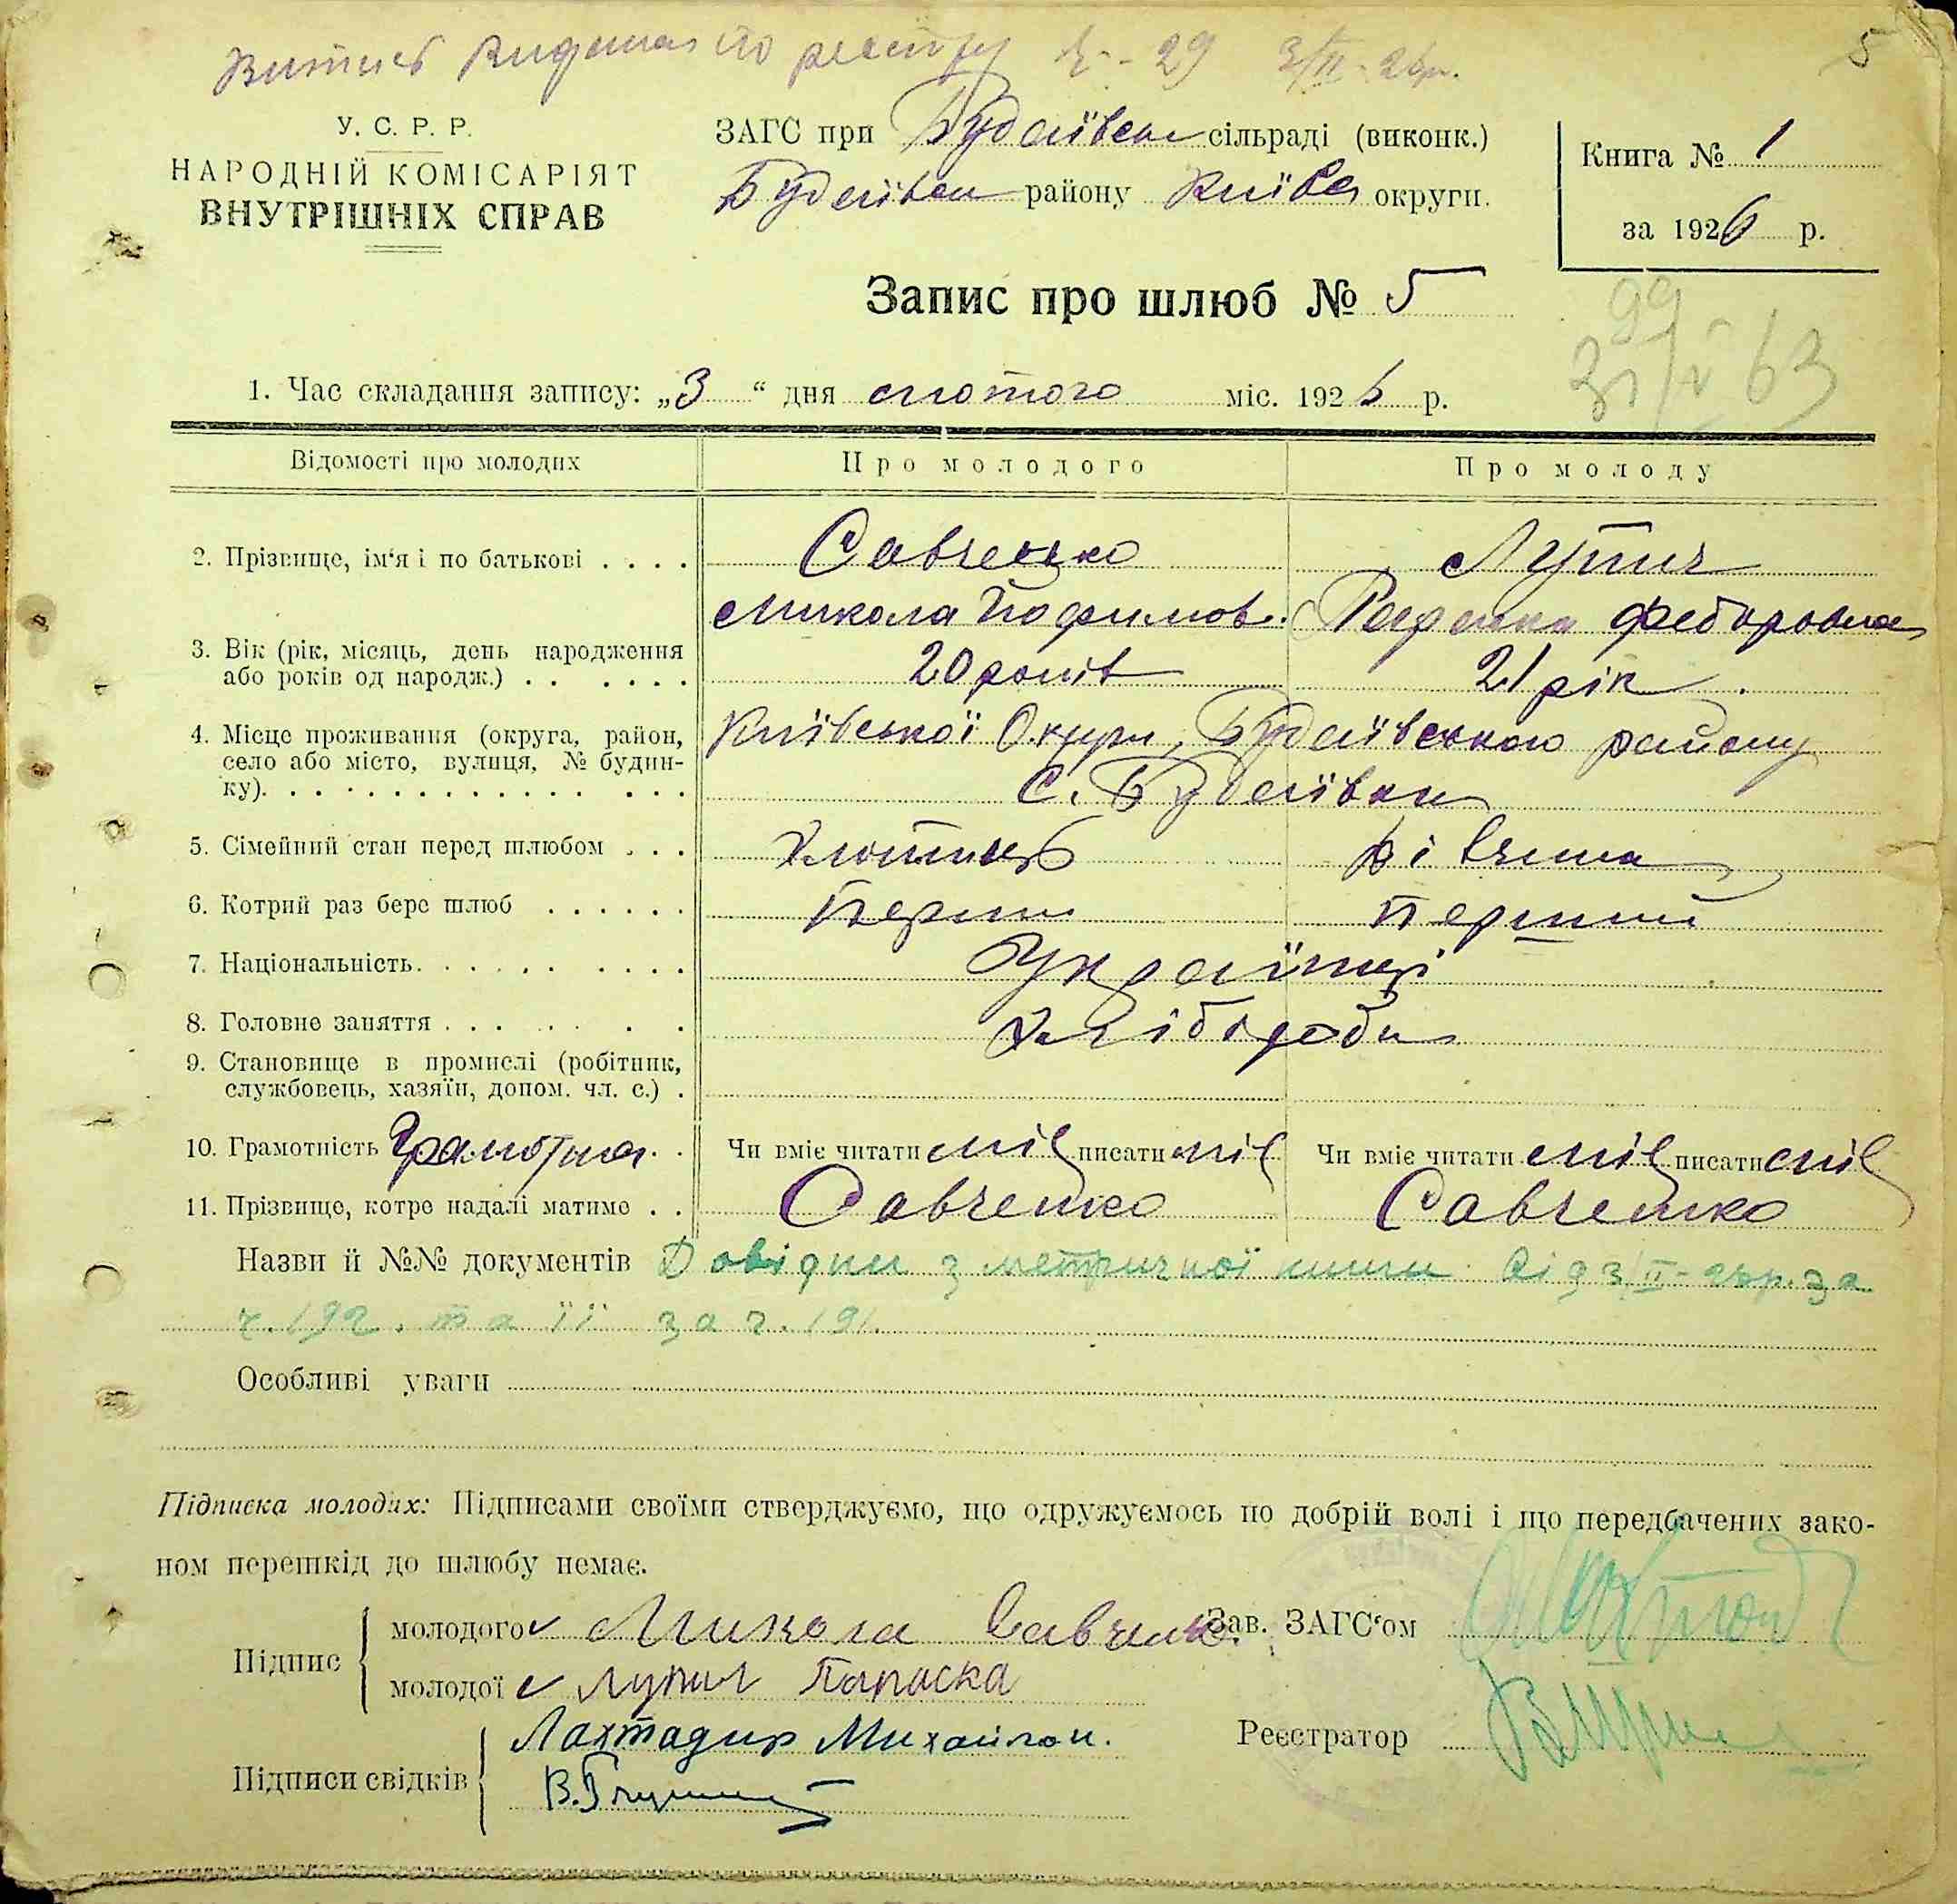 Витяг видана по реєстру № 29 3/II-26р.
5
У. С. Р. Р.
НАРОДНІЙ КОМІСАРІЯТ
ВНУТРІШНІХ СПРАВ
ЗАГС при Будаївськ сільраді (виконк.)
Будаївськ району Київськ округи.
Книга № 1
за 1926 р.
Запис про шлюб № 5
99
31/V 63
1. Час складання запису: „3“ дня лютого міс. 1926 р.
Відомості про молодих Про молодого Про молоду
2. Прізвище, ім‘я і по батькові . . . . Савченко Лупич
Микола Юфимов. Федоровна
3. Вік (рік, місяць, день народження
або років од народж.) . . . . . . 20 років 21 рік
4. Місце проживання (округа, район,
село або місто, вулиця, № будин-
ку). Київської Округи, Будаївського району
С. Будаївка
5. Сімейний стан перед шлюбом . . . Хлопець Дівчина
6. Котрий раз бере шлюб . . . . . . Перший Перший
7. Національність. . . . . . . . . . Українці
8. Головне заняття . . . . . . . . Хлібороби
9. Становище в промислі (робітник,
службовець, хазяїн, допом. чл. с.) .
10. Грамотність Грамотна Чи вміє читати писати Чи вміє читати писати
11. Прізвище, котре надалі матиме . . Савченко Савченко
Назви й №№ документів Довідки з метричної книги від 3/II-26р. за
ч. 192. та її за ч. 191.
Особливі уваги
Підписка молодих: Підписами своїми стверджуємо, що одружуємось по добрій волі і що передбачених зако-
ном перешкід до шлюбу немає.
Підпис
молодого Микола Савченко. Зав. ЗАГС‘ом
молодої Лупич Параска
Підписи свідків
Лахтадир Михайло
Реєстратор